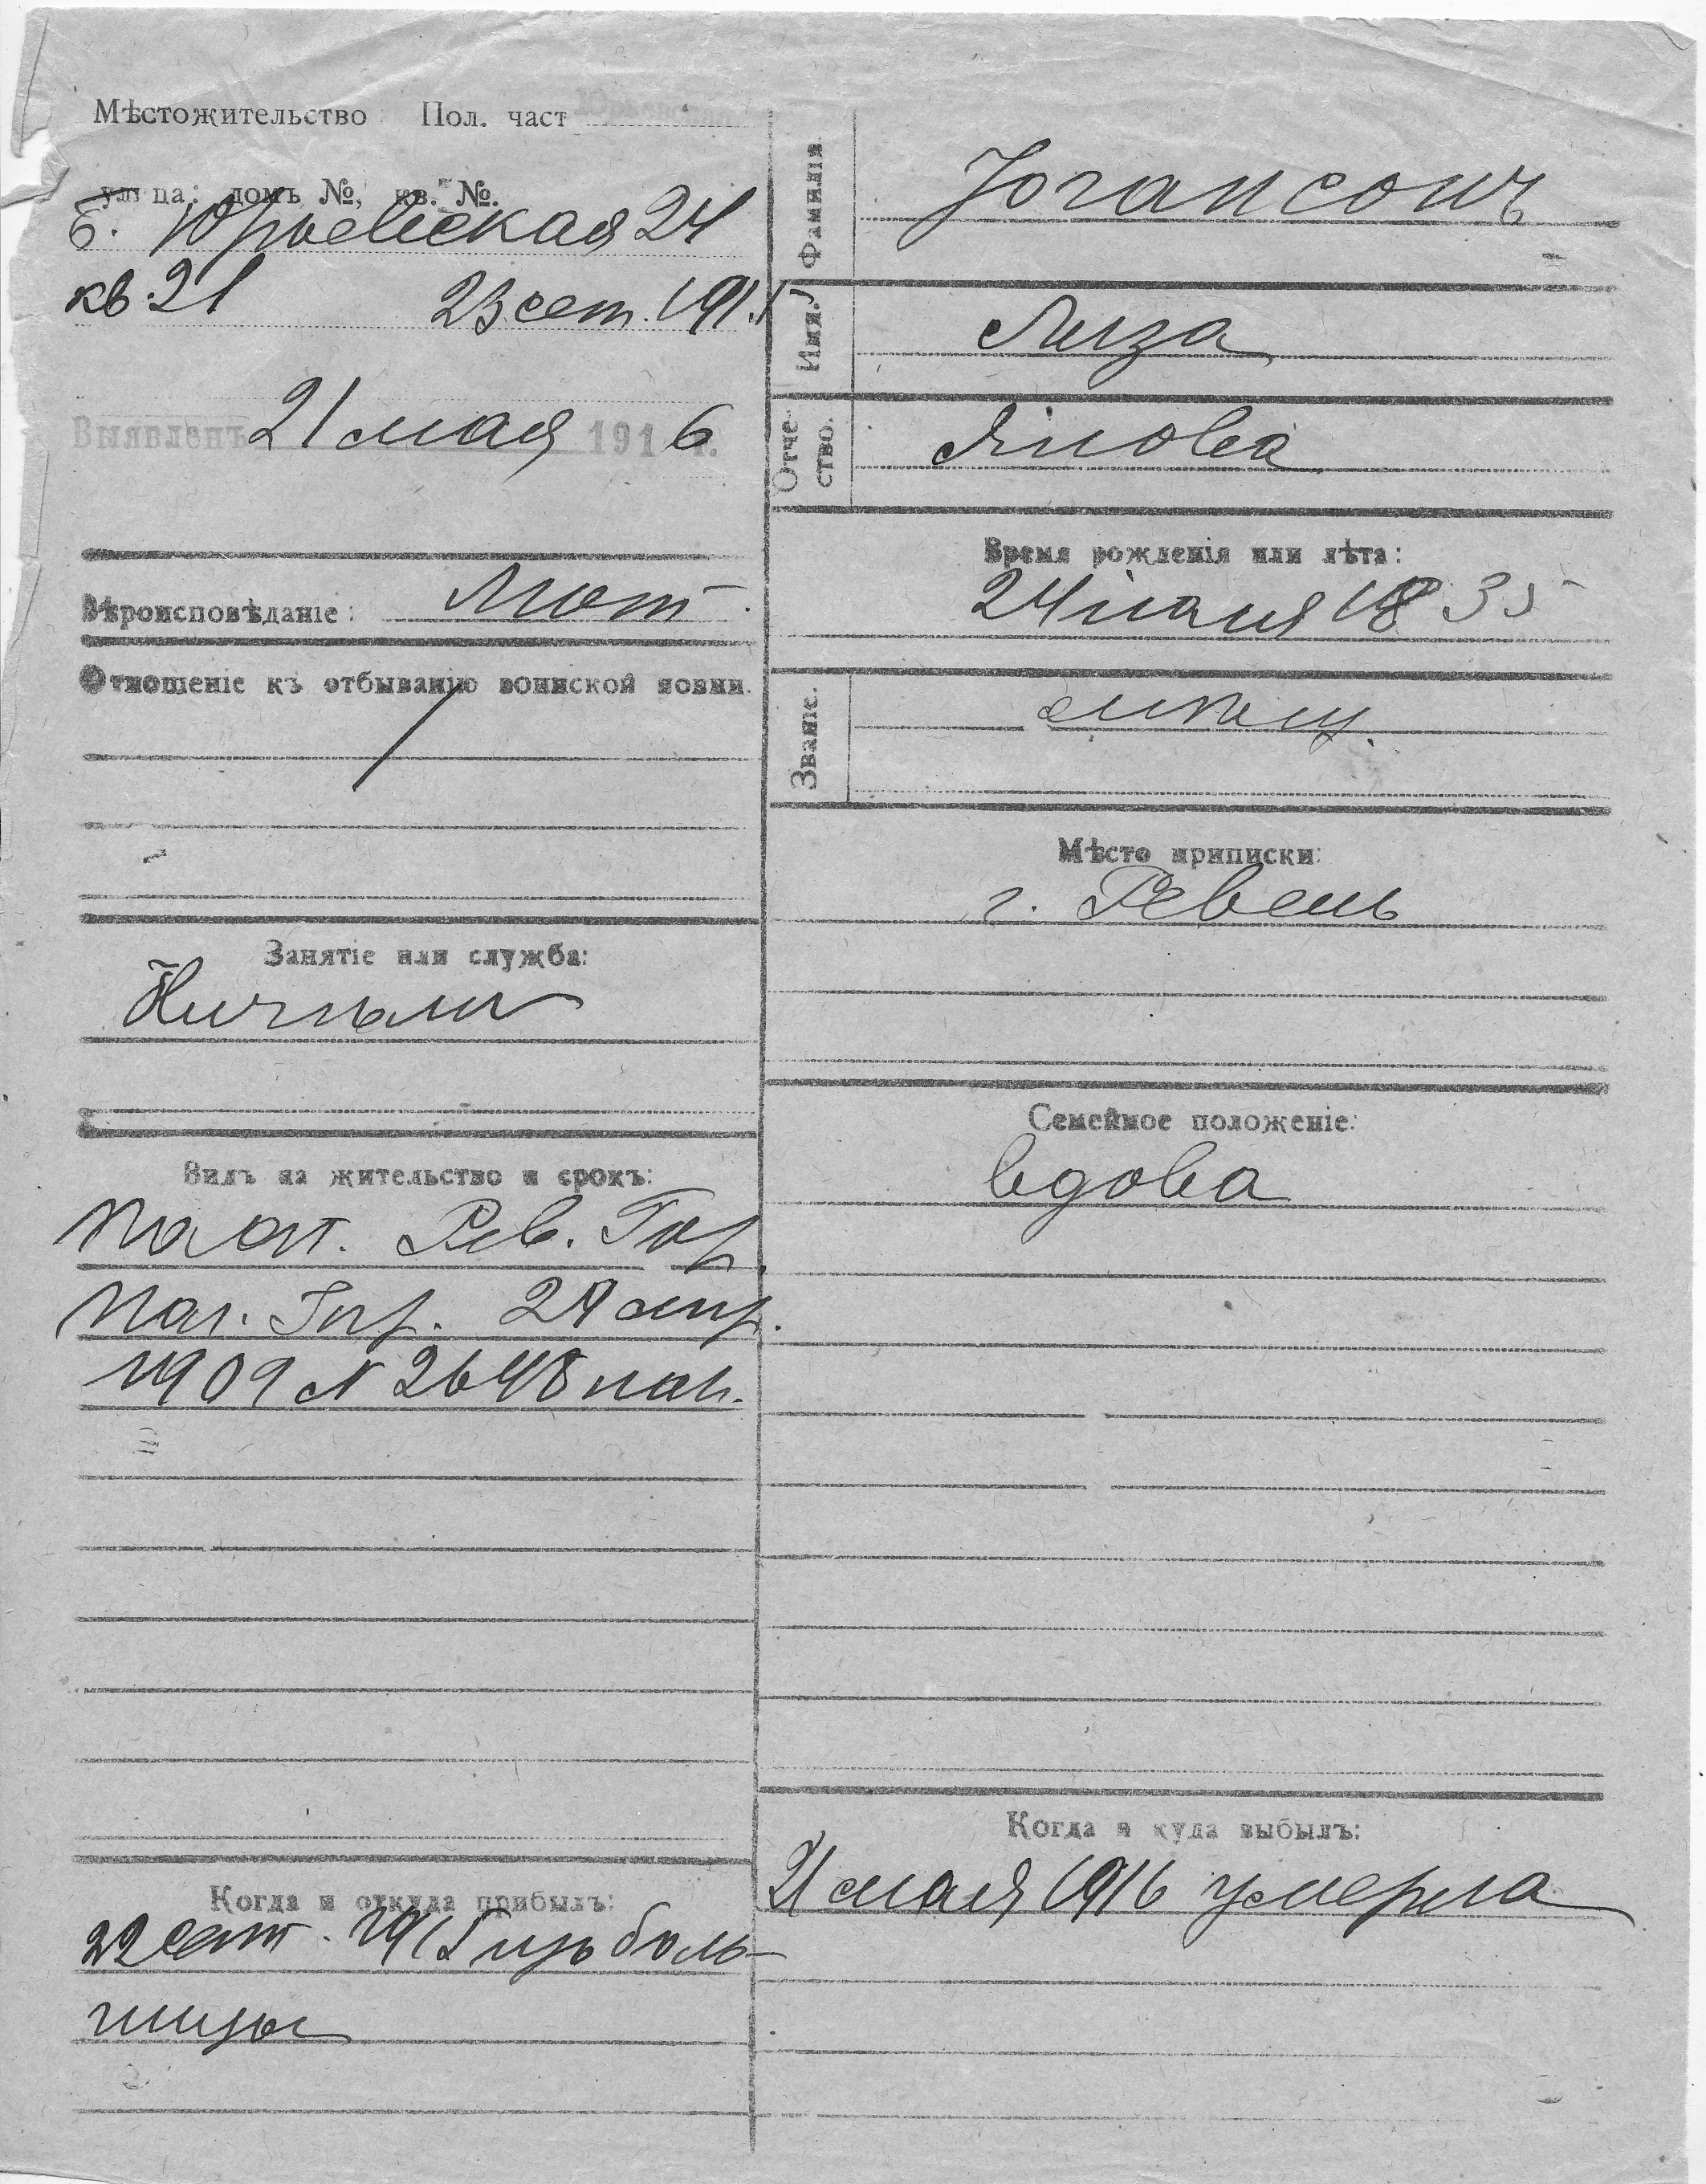 Мѣстожительство Пол. част
улица: домъ №, кв. №.
Б. Юрьевская 24
кв. 21 23 сент. 191
Выявленъ 21 мая 1916 г.
Вѣроисповѣданіе: Лют.
Отношеніе къ отбыванію воинской повин.
Занятіе или служба:
Видъ на жительство и срокъ:
Пасп. Рев. Гор.
1909 N 2648
Когда и откуда прибылъ:
22 сент. 191 изъ боль-
ницы
Фамилія
Югансонъ
Имя.
Лиза
Отче-
ство.
Янова
Время рожденія или лѣта:
1835
Званіе.
Мѣсто приписки:
г. Ревель
Семейное положеніе:
вдова
Когда и куда выбылъ:
21 мая 1916 умерла